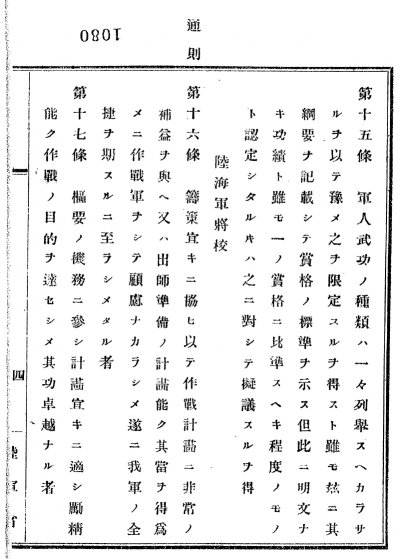 1080
通則
第十五條　軍人武功ノ種類ハ一々列擧スヘカラサ
ルヲ以テ豫メ之ヲ限定スルヲ得スト雖モ玆ニ其
綱要ヲ記載シテ賞格ノ標準ヲ示ス但此ニ明文ナ
キ功績ト雖モ一ノ賞格ニ比準スヘキ程度ノモノ
ト認定シタルトキハ之ニ對シテ擬議スルヲ得
陸海軍將校
第十六條　籌策宜キニ協ヒ以テ作戰計畫ニ非常ノ
補益ヲ與ヘ又ハ出師準備ノ計畫能ク其當ヲ得爲
メニ作戰軍ヲシテ顧慮ナカラシメ遂ニ我軍ノ全
捷ヲ期スルニ至ラシメタル者
第十七條　樞要ノ機務ニ參シ計畫宜キニ適シ勵精
能ク作戰ノ目的ヲ達セシメ其功卓越ナル者
四
陸軍省